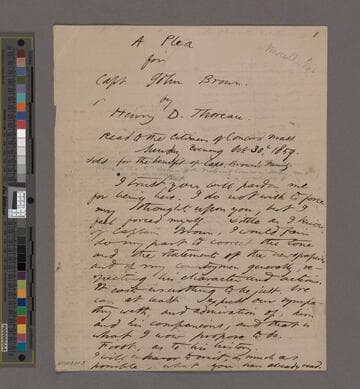 1
A Plea
for
Capt. John Brown.
by
Henry D. Thoreau
Read to the Citizens of Concord Mass
Sunday Evening Oct 30th 1859.
Sold for the benefit of Capt. Brown's Family
I trust you will pardon me
for being here. I do not wish to force
my thoughts upon you, but I
feel forced myself. Little as I know
of Captain Brown, I would fain
do my part to correct the tone
and the statements of the newspapers
and of my countrymen generally, re-
specting his character and actions.
It costs us nothing to be just. We
can at least express our sympa-
thy with, and admiration of, him
and his companions, and that is
what I now propose to do.
First, as to his history.
I will endeavor to omit, as much as
possible, what you have already read.